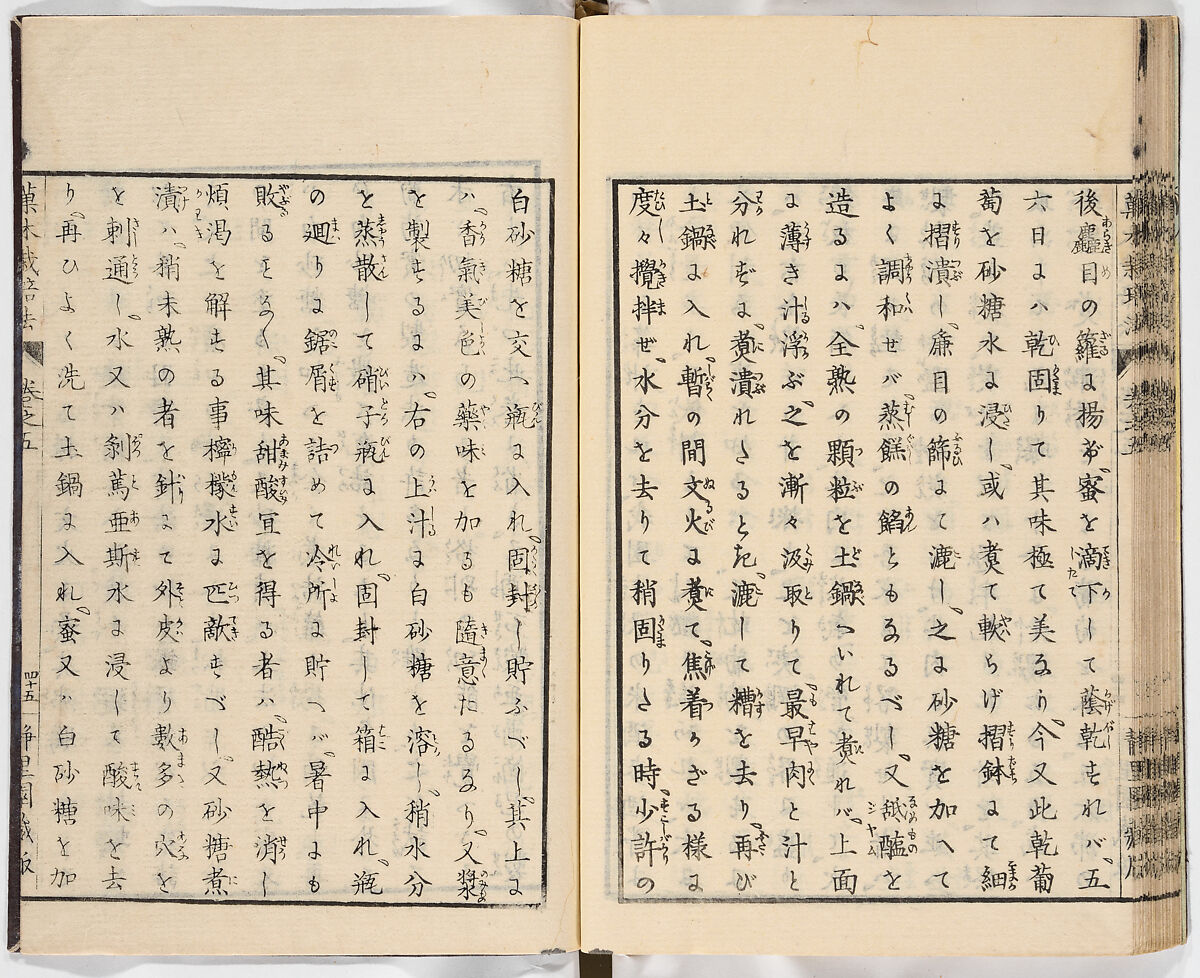 後麤目の籮に揚げ、蜜を滴下して蔭乾すれバ、五
六日にハ乾固りて其味極て美なり、今又此乾葡
萄を砂糖水に浸し、或ハ煑て軟らげ摺鉢にて細
に摺潰し、麁目の篩にて漉し、之に砂糖を加へて
よく調和せバ蒸餻の餡ともなるべし、又越醢を
造るにハ、全熟の顆粒を土鍋へいれて煑れバ、上面
に薄き汁浮ぶ、之を漸々汲取りて、最早肉と汁と
分れずに、煑潰れたるとき、漉して糟を去り、再び
土鍋に入れ、暫の間文火に煑て、焦着かざる様に
度々攪拌ぜ、水分を去りて稍固りたる時、少許の
白砂糖を交へ瓶に入れ、固封し貯ふべし、其上に
ハ、香氣美色の藥味を加るも隨意たるなり、又漿
を製するにハ、右の上汁に白砂糖を溶し、稍水分
を蒸散して硝子瓶に入れ、固封して箱に入れ、瓶
の廻りに鋸屑を詰めて冷所に貯へバ、暑中にも
敗るとなく、其味甜酸宜を得る者ハ、酷熱を消し
煩渇を解する事檸檬水に匹敵すべし、又砂糖煮
漬ハ、稍未熟の者を針にて外皮より數多の穴を
を刺通し、水又ハ剝篤亜斯水に浸して酸味を去
り、再ひよく洗て土鍋に入れ、蜜又ハ白砂糖を加
菓木栽培法 卷之五 四十五 静里園蔵版